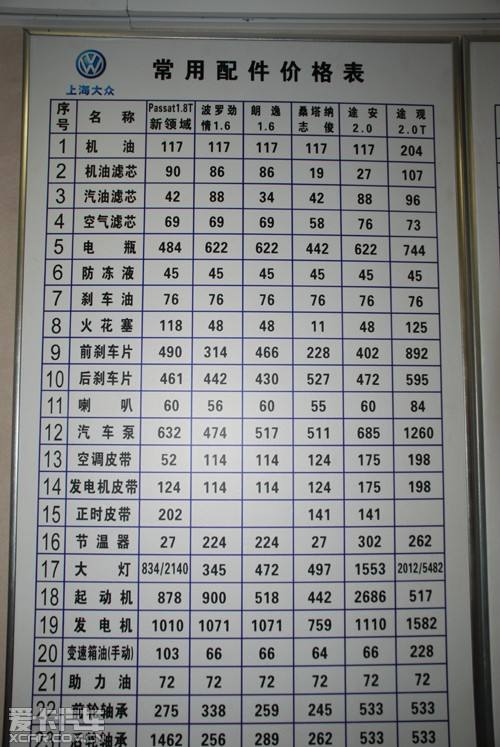 上海大众
常用配件价格表
序号 名称 Passat1.8T新领域 波罗劲情1.6 朗逸1.6 桑塔纳志俊 途安2.0 途观2.0T
1 机油 117 117 117 117 117 204
2 机油滤芯 90 86 86 19 27 107
3 汽油滤芯 42 88 34 42 88 96
4 空气滤芯 69 69 69 58 76 73
5 电瓶 484 622 622 442 622 744
6 防冻液 45 45 45 45 45 45
7 刹车油 76 76 76 76 76 76
8 火花塞 118 48 48 11 48 125
9 前刹车片 490 314 466 228 402 892
10 后刹车片 461 442 430 527 472 595
11 喇叭 60 56 60 55 60 84
12 汽车泵 632 474 517 511 685 1260
13 空调皮带 52 114 114 124 175 198
14 发电机皮带 124 114 114 124 175 198
15 正时皮带 202 141 141
16 节温器 27 224 224 27 302 262
17 大灯 834/2140 345 472 497 1553 2012/5482
18 起动机 878 900 518 442 2686 517
19 发电机 1010 1071 1071 759 1110 1582
20 变速箱油(手动) 103 66 66 64 66 228
21 助力油 72 72 72 72 72 72
22 前轮轴承 275 338 259 245 533 533
23 后轮轴承 1462 256 289 262 533 533
爱卡汽车